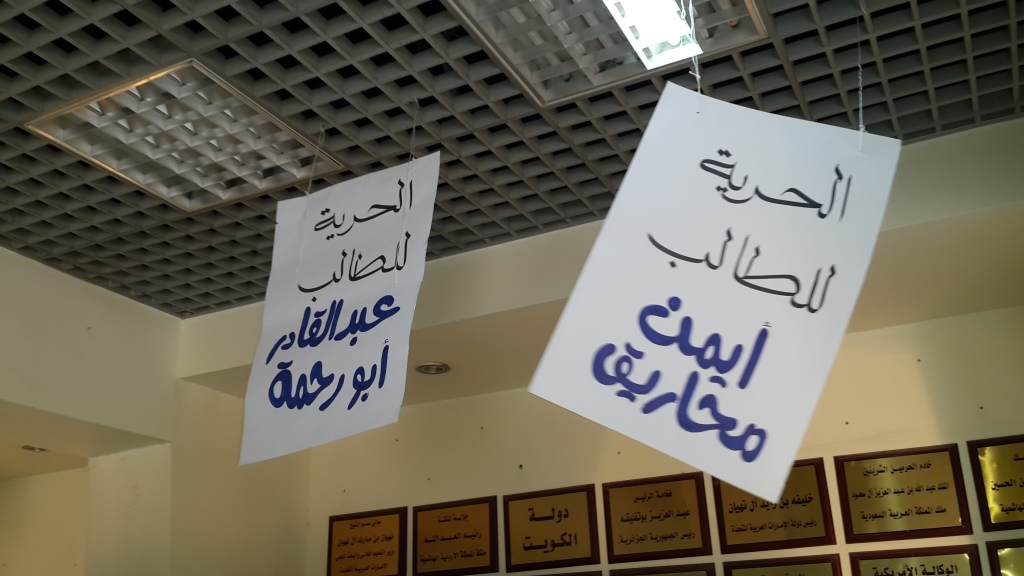 الحرية
للطالب
أيمن
محاريق
الحرية
للطالب
عبدالقادر
أبو رحمة
خادم الحرمين الشريفين
الملك عبد الله بن عبد العزيز آل سعود
ملك المملكة العربية السعودية
خليفه بن زايد آل نهيان
رئيس دولة الامارات العربية المتحدة
فخامة الرئيس
عبد العزيز بوتفليقه
رئيس الجمهورية الجزائرية
دولة
الكويت
جلالة الملكة
رانيا العبد الله
ملكة المملكة الاردنية الهاشمية
معالي سمو الشيخ
نهيان بن مبارك آل نهيان
الوكالة الأمريكية